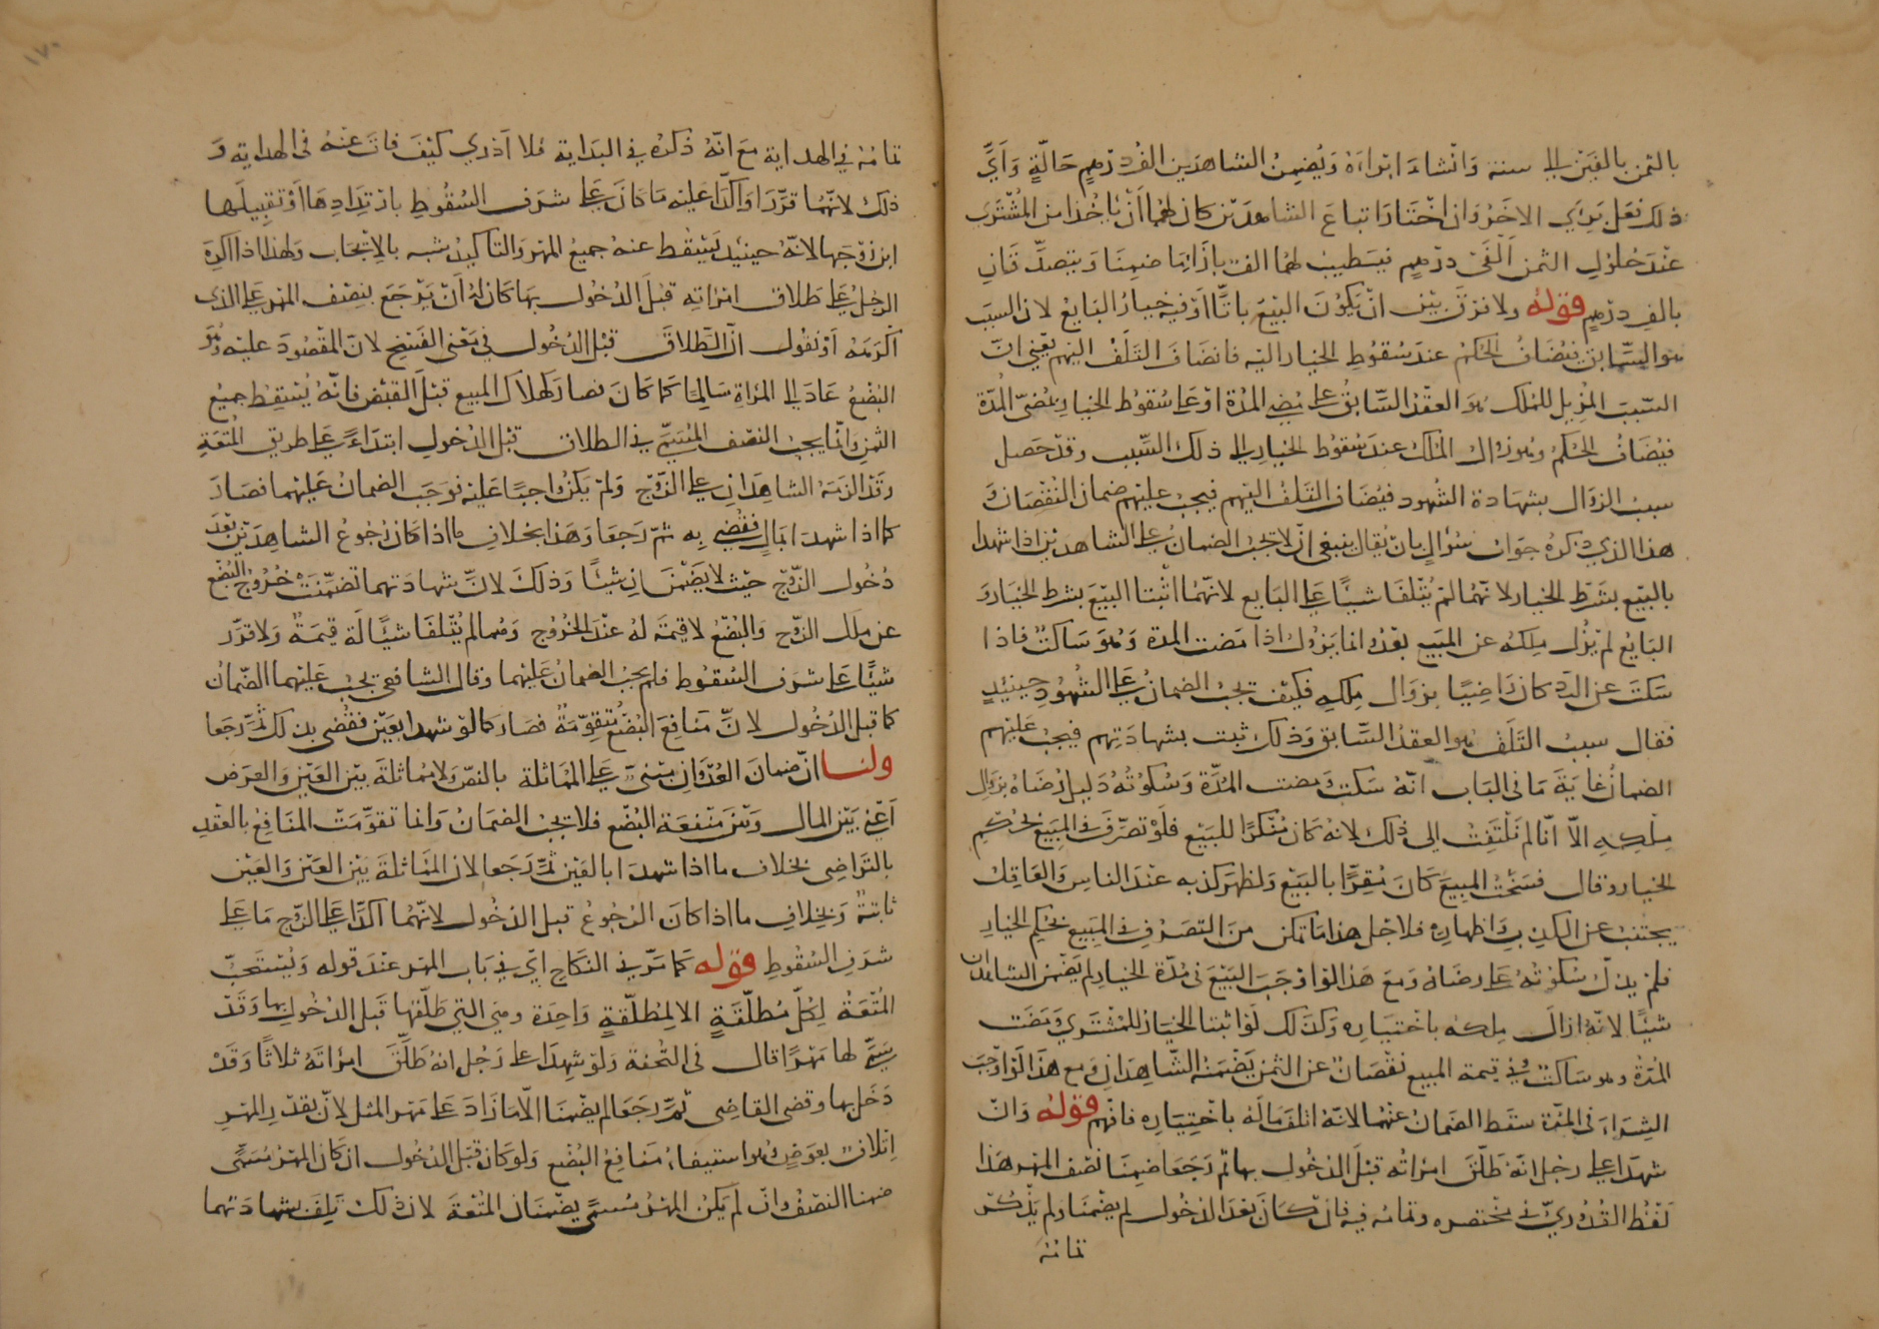 بالثمن بالفين الى سنة وان شاء ابراءه ويضمن الشاهدين الف درهم حالة وأي
ذلك فعل بري الاخر وان اختار اتباع الشاهدين كان لهما أن ياخذا من المشتري
عند حلول الثمن ألفي درهم فيطيب لهما الف بازاء ما ضمنا ويتصدقان
بالف درهم قوله ولا فرق بين ان يكون البيع باتا او فيه خيار البايع لان السبب
هو السابق فيضاف الحكم عند سقوط الخيار اليه فانضاف التلف اليهم يعني ان
السبب المزيل للملك هو العقد السابق على مضي المدة او على سقوط الخيار بمضي المدة
فيضاف الحكم وهو زوال الملك عند سقوط الخيار الى ذلك السبب وقد حصل
سبب الزوال بشهادة الشهود فيضاف التلف اليهم فيجب عليهم ضمان النقصان و
هذا الذي ذكره جواب سؤال بان يقال ينبغي ان لا تجب الضمان على الشاهدين اذا شهدا
بالبيع بشرط الخيار لانهما لم يتلفا شيئا على البايع لانهما اثبتا البيع بشرط الخيار و
البايع لم يزل ملكه عن المبيع بعد وانما يزول اذا مضت المدة وهو ساكت فاذا
سكت عن الرد كان راضيا بزوال ملكه فكيف تجب الضمان على الشهود حينئذ
فقال سبب التلف هو العقد السابق وذلك ثبت بشهادتهم فيجب عليهم
الضمان غاية ما في الباب انه سكت ومضت المدة وسكوته دليل رضاه بزوال
ملكه الا انا لم نلتفت الى ذلك لانه كان منكرا للبيع فلو تصرف في المبيع بحكم
الخيار وقال فسخت المبيع كان مقرا بالبيع ولظهر كذبه عند الناس والعاقل
يجتنب عن الكذب واظهاره فلاجل هذا ما تمكن من التصرف في المبيع بحكم الخيار
فلم يدل سكوته على رضاه ومع هذا لو اوجب البيع في مدة الخيار لم يضمن الشاهدان
شيئا لانه ازال ملكه باختياره وكذلك لو اثبتا الخيار للمشتري ومضت
المدة وهو ساكت وفي قيمة المبيع نقصان عن الثمن يضمنه الشاهدان ومع هذا لو اوجب
الشراء في المدة سقط الضمان عنهما لانه اتلف ماله باختياره فافهم قوله وان
شهدا على رجل انه طلق امراته قبل الدخول بها ثم رجعا ضمنا نصف المهر هذا
لفظ القدوري في مختصره وتمامه فيه فان كان بعد الدخول لم يضمنا ولم يذكر
تمامه
تمامه في الهداية مع انه ذكره في البداية فلا أدري كيف فات عنه في الهداية و
ذلك لانهما قررا واكدا عليه ما كان على شرف السقوط بارتدادها أو تقبيلها
ابن زوجها لانه حينئذ يسقط عنه جميع المهر والتاكيد شبه بالايجاب ولهذا اذا اكره
الرجل على طلاق امراته قبل الدخول بها كان له أن يرجع بنصف المهر على الذي
اكرهه او نقول ان الطلاق قبل الدخول في معنى الفسخ لان المقصود عليه وهو
البضع عاد الى المراة سالما كما كان فصار كهلاك المبيع قبل القبض فانه يسقط جميع
الثمن وانما يجب النصف المسمى في الطلاق قبل الدخول ابتداء على طريق المتعة
وقد الزمه الشاهدان على الزوج ولم يكن واجبا عليه فوجب الضمان عليهما فصار
كما اذا شهدا بمال فقضي به ثم رجعا وهذا بخلاف ما اذا كان رجوع الشاهدين بعد
دخول الزوج حيث لا يضمنان شيئا وذلك لان شهادتهما تضمنت خروج البضع
عن ملك الزوج والبضع لا قيمة له عند الخروج وهما لم يتلفا شيئا له قيمة ولا قرر
شيئا على شرف السقوط فلم يجب الضمان عليهما وقال الشافعي تجب عليهما الضمان
كما قبل الدخول لان منافع البضع متقومة فصار كما لو شهدا بعين فقضي بذلك ثم رجعا
ولنا ان ضمان العدوان مبني على المماثلة بالنص ولا مماثلة بين العين والعرض
أعني بين المال وبين منفعة البضع فلا تجب الضمان وانما تقومت المنافع بالعقد
بالتراضي بخلاف ما اذا شهدا بالعين ثم رجعا لان المماثلة بين العين والعين
ثابتة وبخلاف ما اذا كان الرجوع قبل الدخول لانهما اكدا على الزوج ما على
شرف السقوط قوله كما مر في النكاح اي في باب المهر عند قوله ويستحب
المتعة لكل مطلقة الا لمطلقة واحدة وهي التي طلقها قبل الدخول بها وقد
سمى لها مهرا قال في التحفة ولو شهدا على رجل انه طلق امراته ثلاثا وقد
دخل بها وقضى القاضي ثم رجعا لم يضمنا الا ما زاد على مهر المثل لان بقدر المهر
اتلاف بعوض وهو استيفاء منافع البضع ولو كان قبل الدخول ان كان المهر مسمى
ضمنا النصف وان لم يكن المهر مسمى يضمنان المتعة لان ذلك تلف بشهادتهما